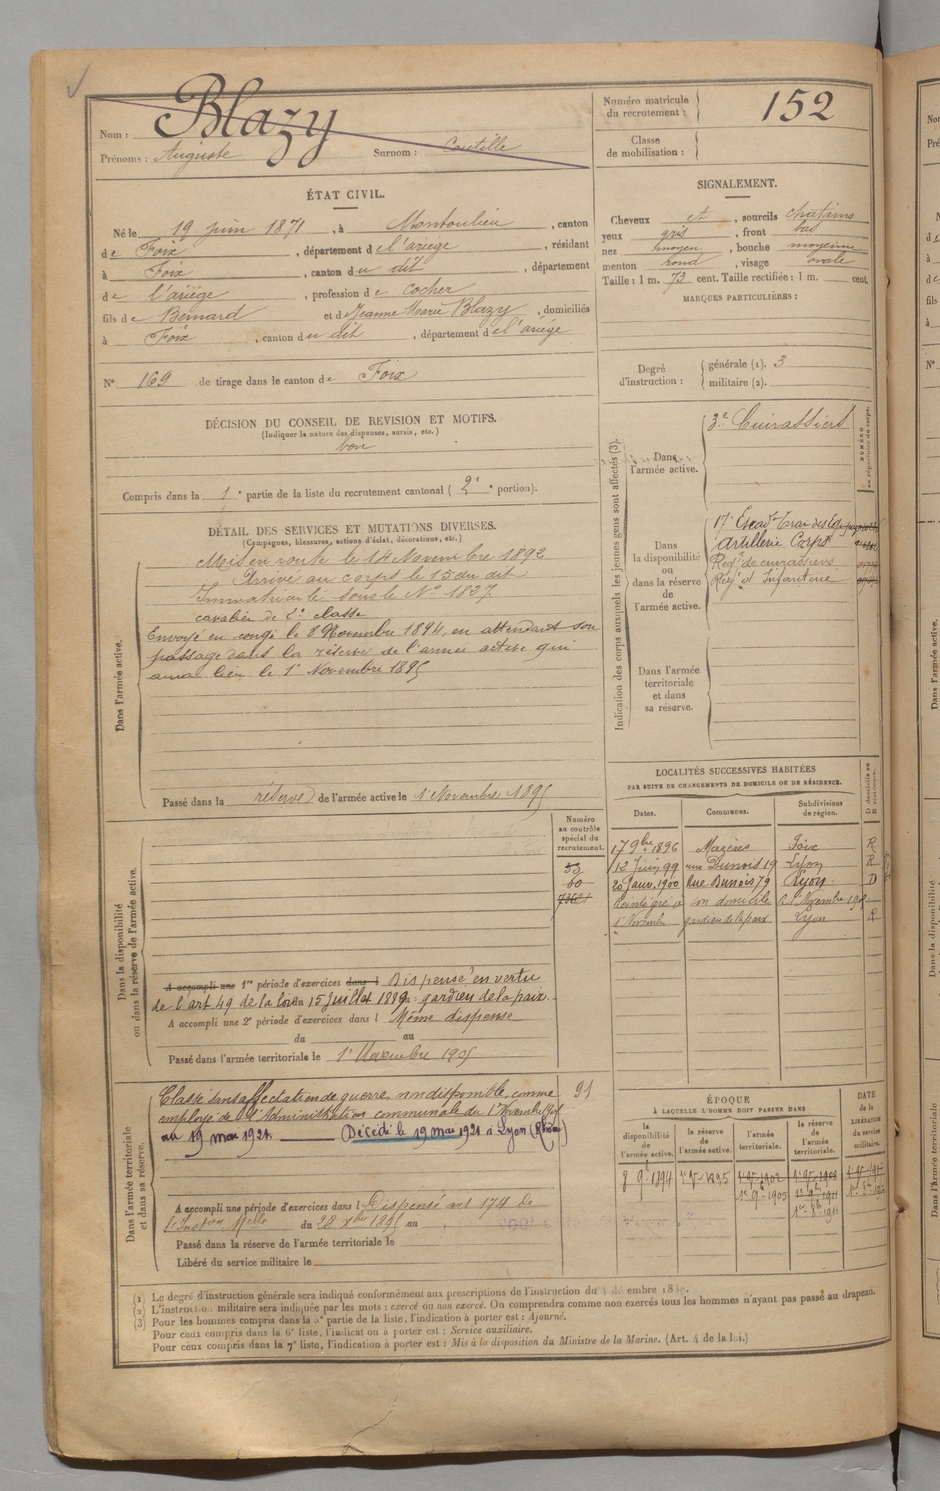 Nom : Blazy
Prénoms : Auguste Surnom :
Numéro matricule du recrutement : 152
Classe de mobilisation :
ÉTAT CIVIL.
Né le 19 juin 1871, à Montoulieu, canton
de Foix, département de l'ariège, résidant
à Foix, canton du dit, département
de l'ariège, profession de cocher
fils de Bernard et de Jeanne Marie Blazy, domiciliés
à Foix, canton du dit, département de l'ariège
N° 169 de tirage dans le canton de Foix
SIGNALEMENT.
Cheveux et, sourcils chatains
yeux gris, front bas
nez moyen, bouche moyenne
menton rond, visage ovale
Taille : 1 m. 73 cent. Taille rectifiée : 1 m. cent.
MARQUES PARTICULIÈRES :
Degré d'instruction :
générale (1). 3
militaire (2).
DÉCISION DU CONSEIL DE REVISION ET MOTIFS.
(Indiquer la nature des dispenses, sursis, etc.)
bon
Compris dans la 1e partie de la liste du recrutement cantonal (2e portion).
DÉTAIL DES SERVICES ET MUTATIONS DIVERSES.
(Campagnes, blessures, actions d'éclat, décorations, etc.)
Dans l'armée active.
Mis en route le 14 Novembre 1892
Arrivé au corps le 15 du dit
Immatriculé sous le N° 1837
cavalier de 2e classe
Envoyé en congé le 8 Novembre 1894, en attendant son
passage dans la réserve de l'armée active qui
aura lieu le 1r Novembre 1895
Passé dans la réserve de l'armée active le 1r Novembre 1895
Indication des corps auxquels les jeunes gens sont affectés (3).
NUMÉRO au répertoire du corps.
Dans l'armée active.
3e Cuirassiers
Dans la disponibilité ou dans la réserve de l'armée active.
17e Escad. Train des Eq.
Artillerie Corps
Regt de cuirassiers
Regt d'Infanterie
Dans l'armée territoriale et dans sa réserve.
LOCALITÉS SUCCESSIVES HABITÉES
PAR SUITE DE CHANGEMENTS DE DOMICILE OU DE RÉSIDENCE.
Dates. Communes. Subdivisions de région. D domicile ou R résidence.
17 9bre 1896 Mazères Foix R
12 Juin 99 rue Dunois 19 Lyon R
20 Janv. 1900 Rue Dunois 79 Lyon D
Réintégré à son domicile
1r Novemb. gardien de la paix Lyon R
Dans la disponibilité ou dans la réserve de l'armée active.
Numéro au contrôle spécial du recrutement.
A accompli une 1re période d'exercices dans l Dispensé en vertu
de l'art. 49 de la loi du 15 juillet 1889 : gardien de la paix.
A accompli une 2e période d'exercices dans l Même dispense
du au
Passé dans l'armée territoriale le 1r Novembre 1905
Dans l'armée territoriale et dans sa réserve.
Classé sans affectation de guerre non disponible, comme 91
employé de l'Administration communale du 1r Novembre
au 19 mai 1921. Décédé le 19 mai 1921 à Lyon (Rhône)
A accompli une période d'exercices dans l Dispensé art 174 de
l'Inston Melle du 28 Xbre 1895 au
Passé dans la réserve de l'armée territoriale le
Libéré du service militaire le
ÉPOQUE
À LAQUELLE L'HOMME DOIT PASSER DANS
la disponibilité de l'armée active. la réserve de l'armée active. l'armée territoriale. la réserve de l'armée territoriale. DATE de la LIBÉRATION du service militaire.
8 9bre 1894
1r 9bre 1895
1r 9bre 1905
(1) Le degré d'instruction générale sera indiqué conformément aux prescriptions de l'instruction du 4 décembre 1889.
(2) L'instruction militaire sera indiquée par les mots : exercé ou non exercé. On comprendra comme non exercés tous les hommes n'ayant pas passé au drapeau.
(3) Pour les hommes compris dans la 5e partie de la liste, l'indication à porter est : Ajourné.
Pour ceux compris dans la 6e liste, l'indication à porter est : Service auxiliaire.
Pour ceux compris dans la 7e liste, l'indication à porter est : Mis à la disposition du Ministre de la Marine. (Art. 4 de la loi.)